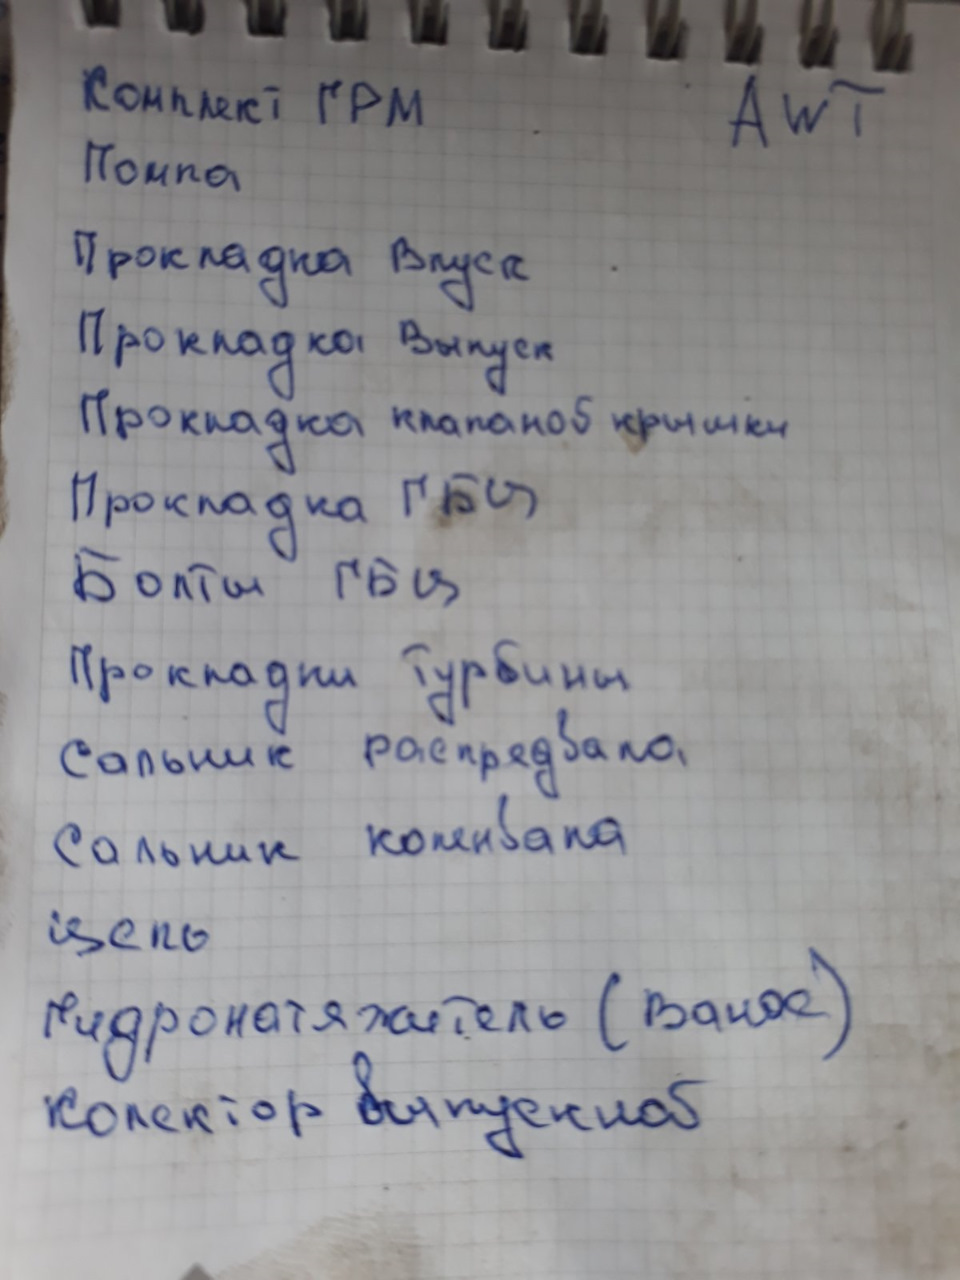 Комплект ГРМ AWT
Помпа
Прокладка Впуск
Прокладка Выпуск
Прокладка клапаноб крышки
Прокладка ГБЦ
Болты ГБЦ
Прокладки Турбины
Сальник распредвала
Сальник коленвала
цепь
Гидронатяжитель (Ванос)
Колектор выпускноб